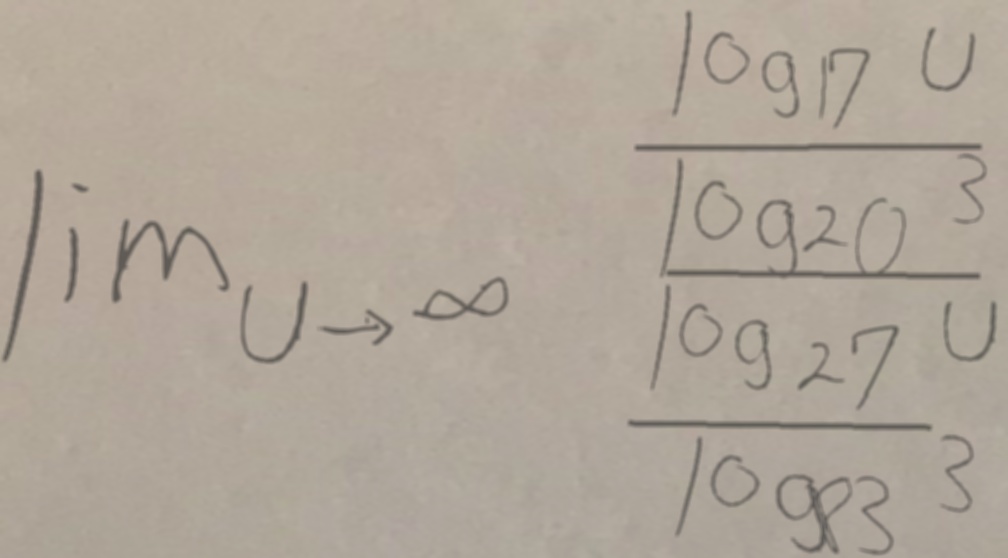 lim U→∞
log₁₇ U
log₂₀ 3
log₂₇ U
log₈₃ 3